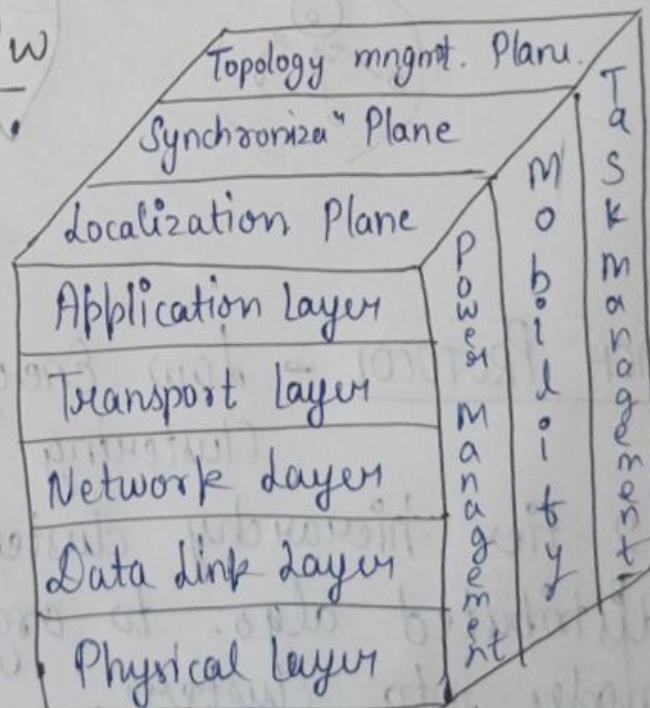 w
Topology mngmt. Plane.
Synchronizaⁿ Plane
Localization Plane
Application Layer
Transport Layer
Network Layer
Data Link Layer
Physical Layer
Power Management
Mobility
Task Management